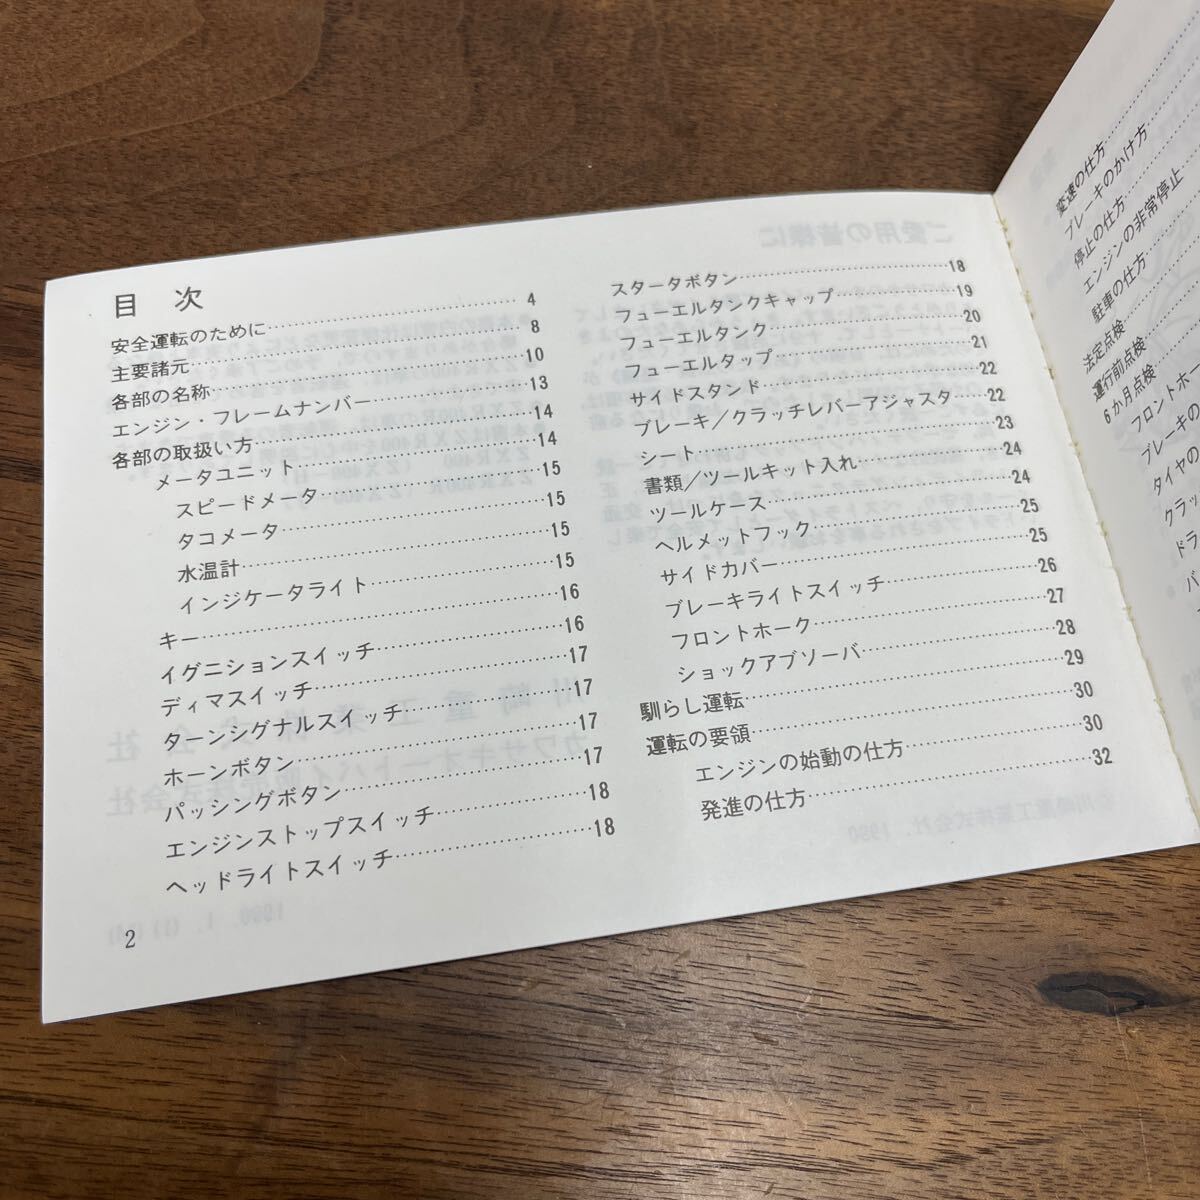 目次
安全運転のために……4
主要諸元……8
各部の名称……10
エンジン・フレームナンバー……13
各部の取扱い方……14
メータユニット……14
スピードメータ……15
タコメータ……15
水温計……15
インジケータライト……15
キー……16
イグニションスイッチ……16
ディマスイッチ……17
ターンシグナルスイッチ……17
ホーンボタン……17
パッシングボタン……17
エンジンストップスイッチ……18
ヘッドライトスイッチ……18
スタータボタン……18
フューエルタンクキャップ……19
フューエルタンク……20
フューエルタップ……21
サイドスタンド……22
ブレーキ／クラッチレバーアジャスタ……22
シート……23
書類／ツールキット入れ……24
ツールケース……24
ヘルメットフック……25
サイドカバー……25
ブレーキライトスイッチ……26
フロントホーク……27
ショックアブソーバ……28
馴らし運転……29
運転の要領……30
エンジンの始動の仕方……30
発進の仕方……32
2
変速の仕方
ブレーキのかけ方
停止の仕方
エンジンの非常停止
駐車の仕方
法定点検
運行前点検
6か月点検
フロントホー
ブレーキの
タイヤの
クラッ
ドラ
バ